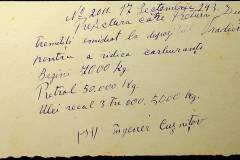 No 2011. 17 Septembrie 943.
Prefectura către Pretura
trimiteți imediat la depozitul
pentru a ridica carburanți
Benzină 4000 Kg.
Petrol 50.000 Kg.
Ulei 3 5000 Kg.
Inginer Cuznițov